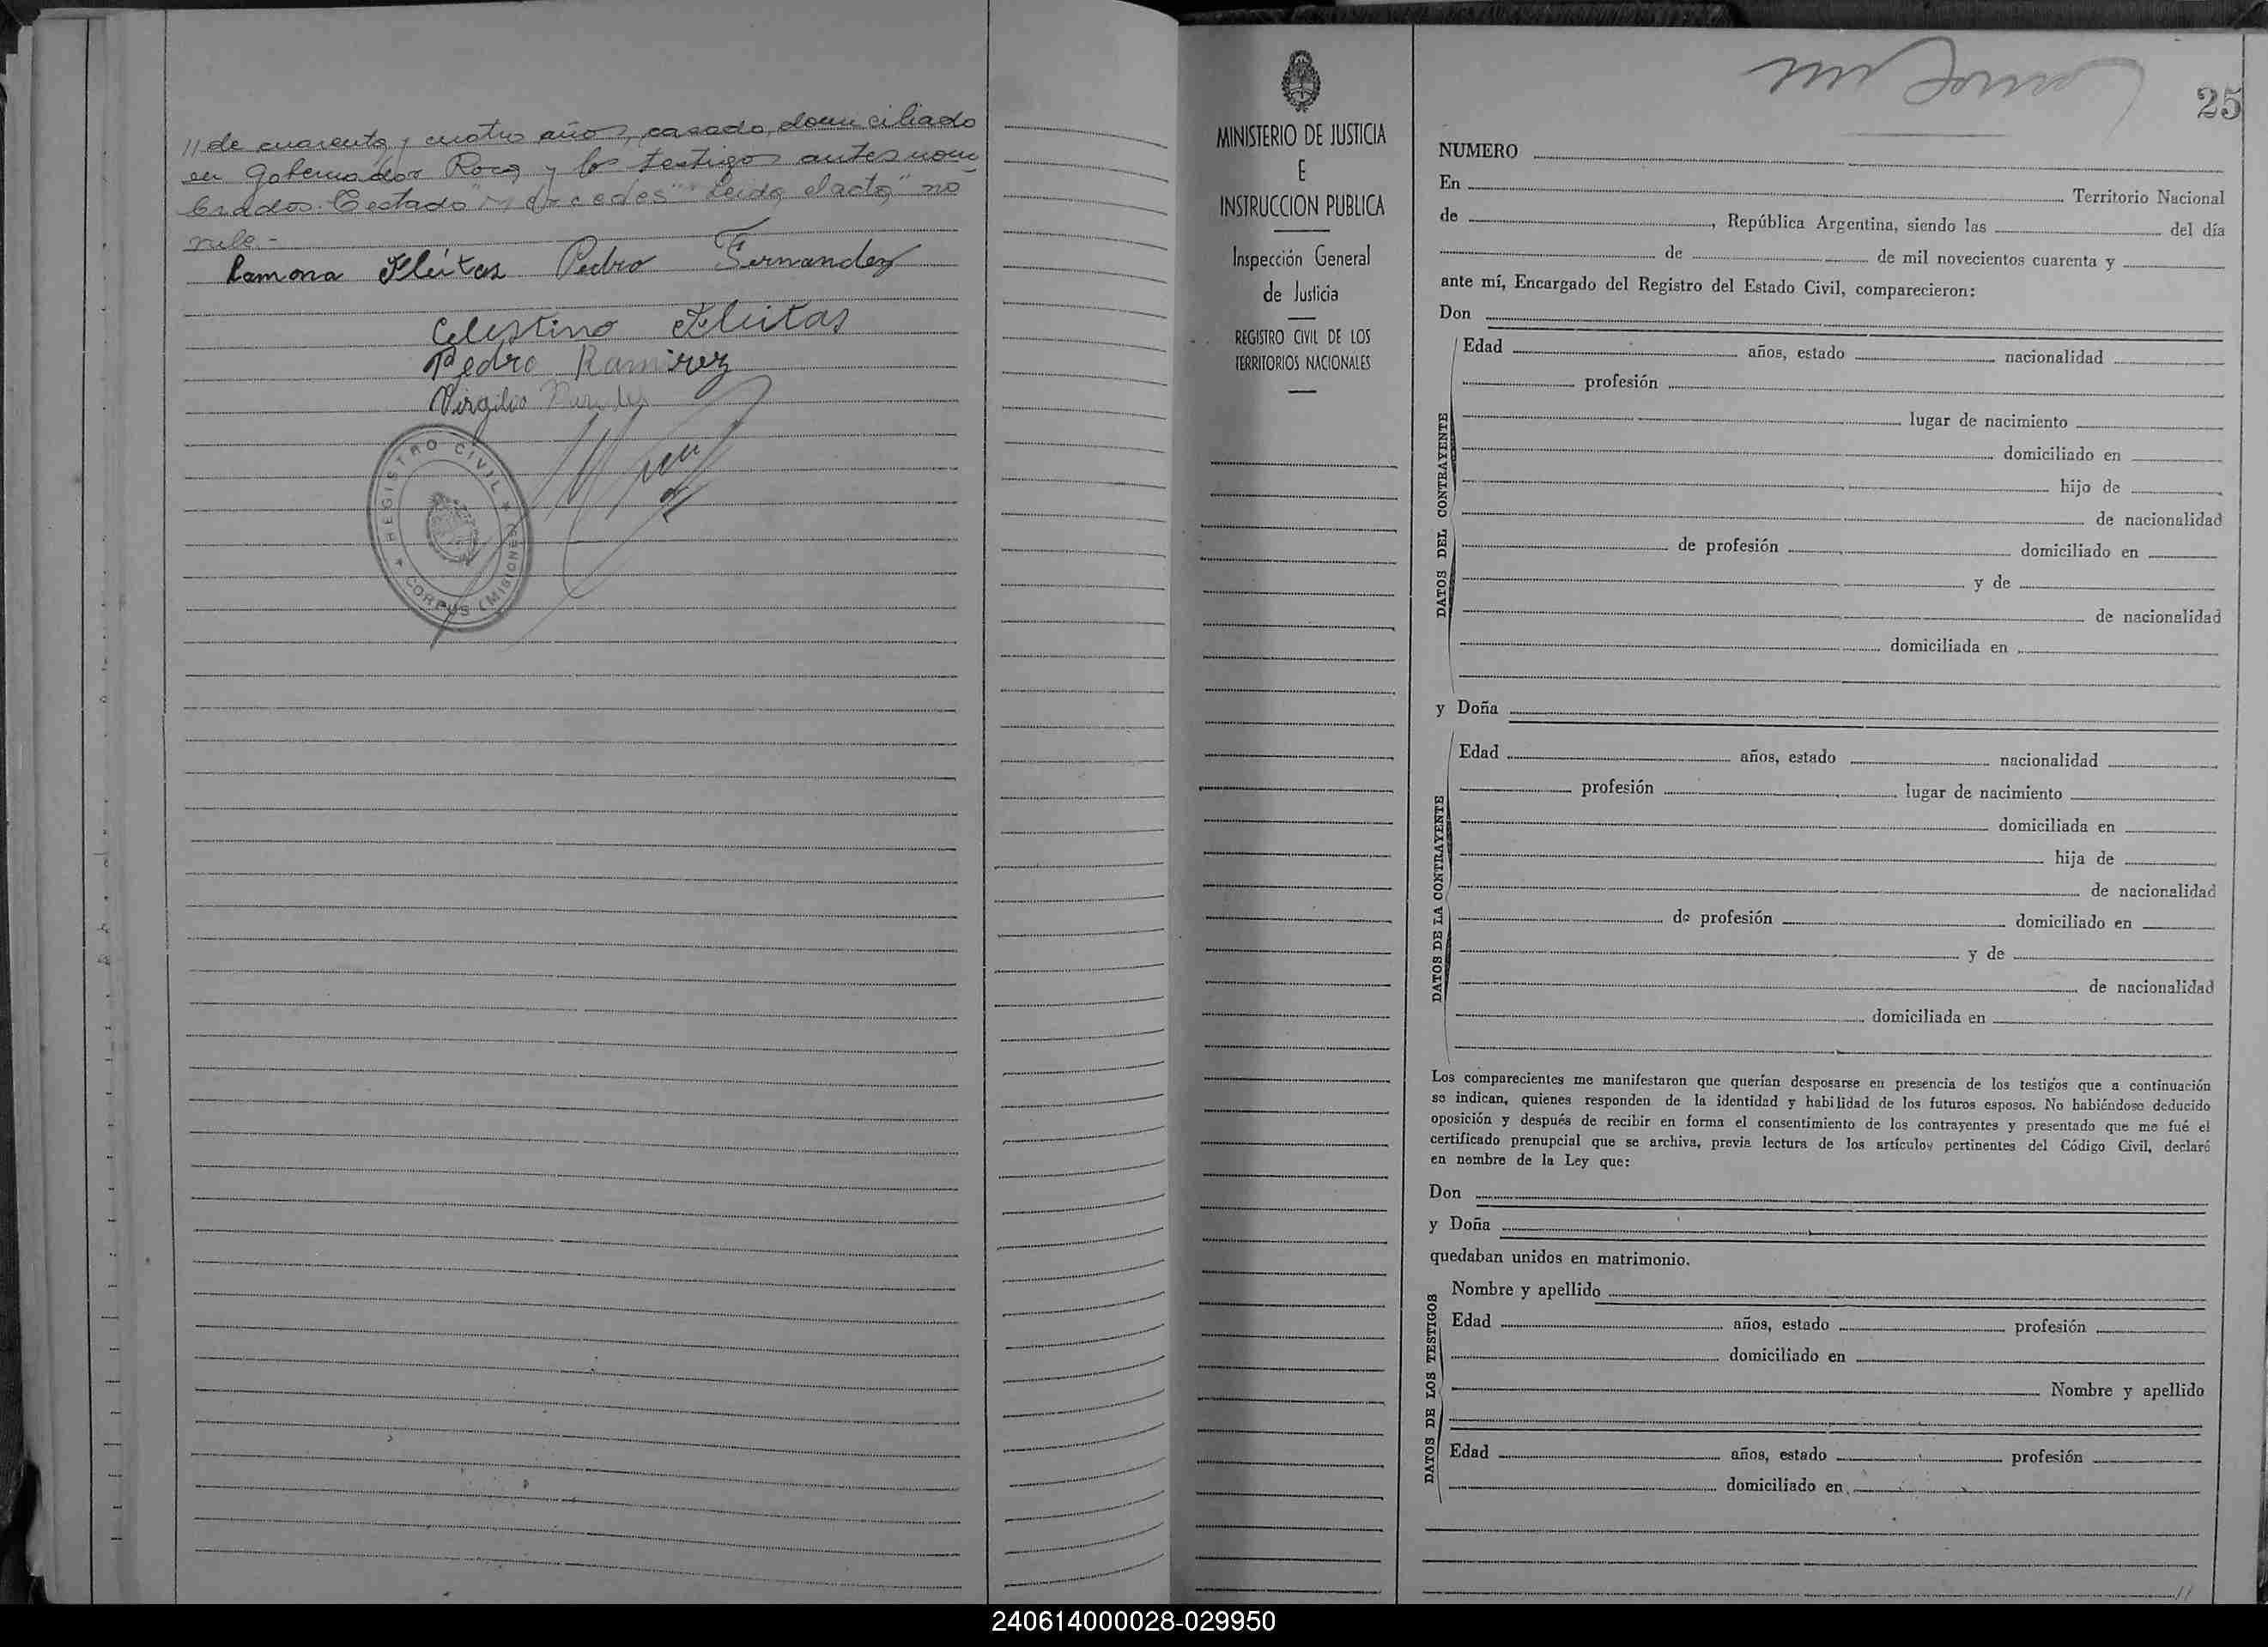 // de cuarenta y cuatro años, casado, domiciliado
en Gobernador Roca y los testigos antes nom
brados. Testado "Mercedes" "Leida el acta," no
vale.-
Ramona Fleitas Pedro Fernandez
Celestino Fleitas
Pedro Ramirez
Virgilio
REGISTRO CIVIL
CORPUS (MISIONES)
MINISTERIO DE JUSTICIA
E
INSTRUCCION PUBLICA
Inspección General
de Justicia
REGISTRO CIVIL DE LOS
TERRITORIOS NACIONALES
25
NUMERO
En Territorio Nacional
de , República Argentina, siendo las del día
de de mil novecientos cuarenta y
ante mí, Encargado del Registro del Estado Civil, comparecieron:
Don
DATOS DEL CONTRAYENTE
Edad años, estado nacionalidad
profesión
lugar de nacimiento
domiciliado en
hijo de
de nacionalidad
de profesión domiciliado en
y de
de nacionalidad
domiciliada en
y Doña
DATOS DE LA CONTRAYENTE
Edad años, estado nacionalidad
profesión lugar de nacimiento
domiciliada en
hija de
de nacionalidad
de profesión domiciliado en
y de
de nacionalidad
domiciliada en
Los comparecientes me manifestaron que querían desposarse en presencia de los testigos que a continuación
se indican, quienes responden de la identidad y habilidad de los futuros esposos. No habiéndose deducido
oposición y después de recibir en forma el consentimiento de los contrayentes y presentado que me fué el
certificado prenupcial que se archiva, previa lectura de los artículos pertinentes del Código Civil, declaré
en nombre de la Ley que:
Don
y Doña
quedaban unidos en matrimonio.
DATOS DE LOS TESTIGOS
Nombre y apellido
Edad años, estado profesión
domiciliado en
Nombre y apellido
Edad años, estado profesión
domiciliado en
//
240614000028-029950